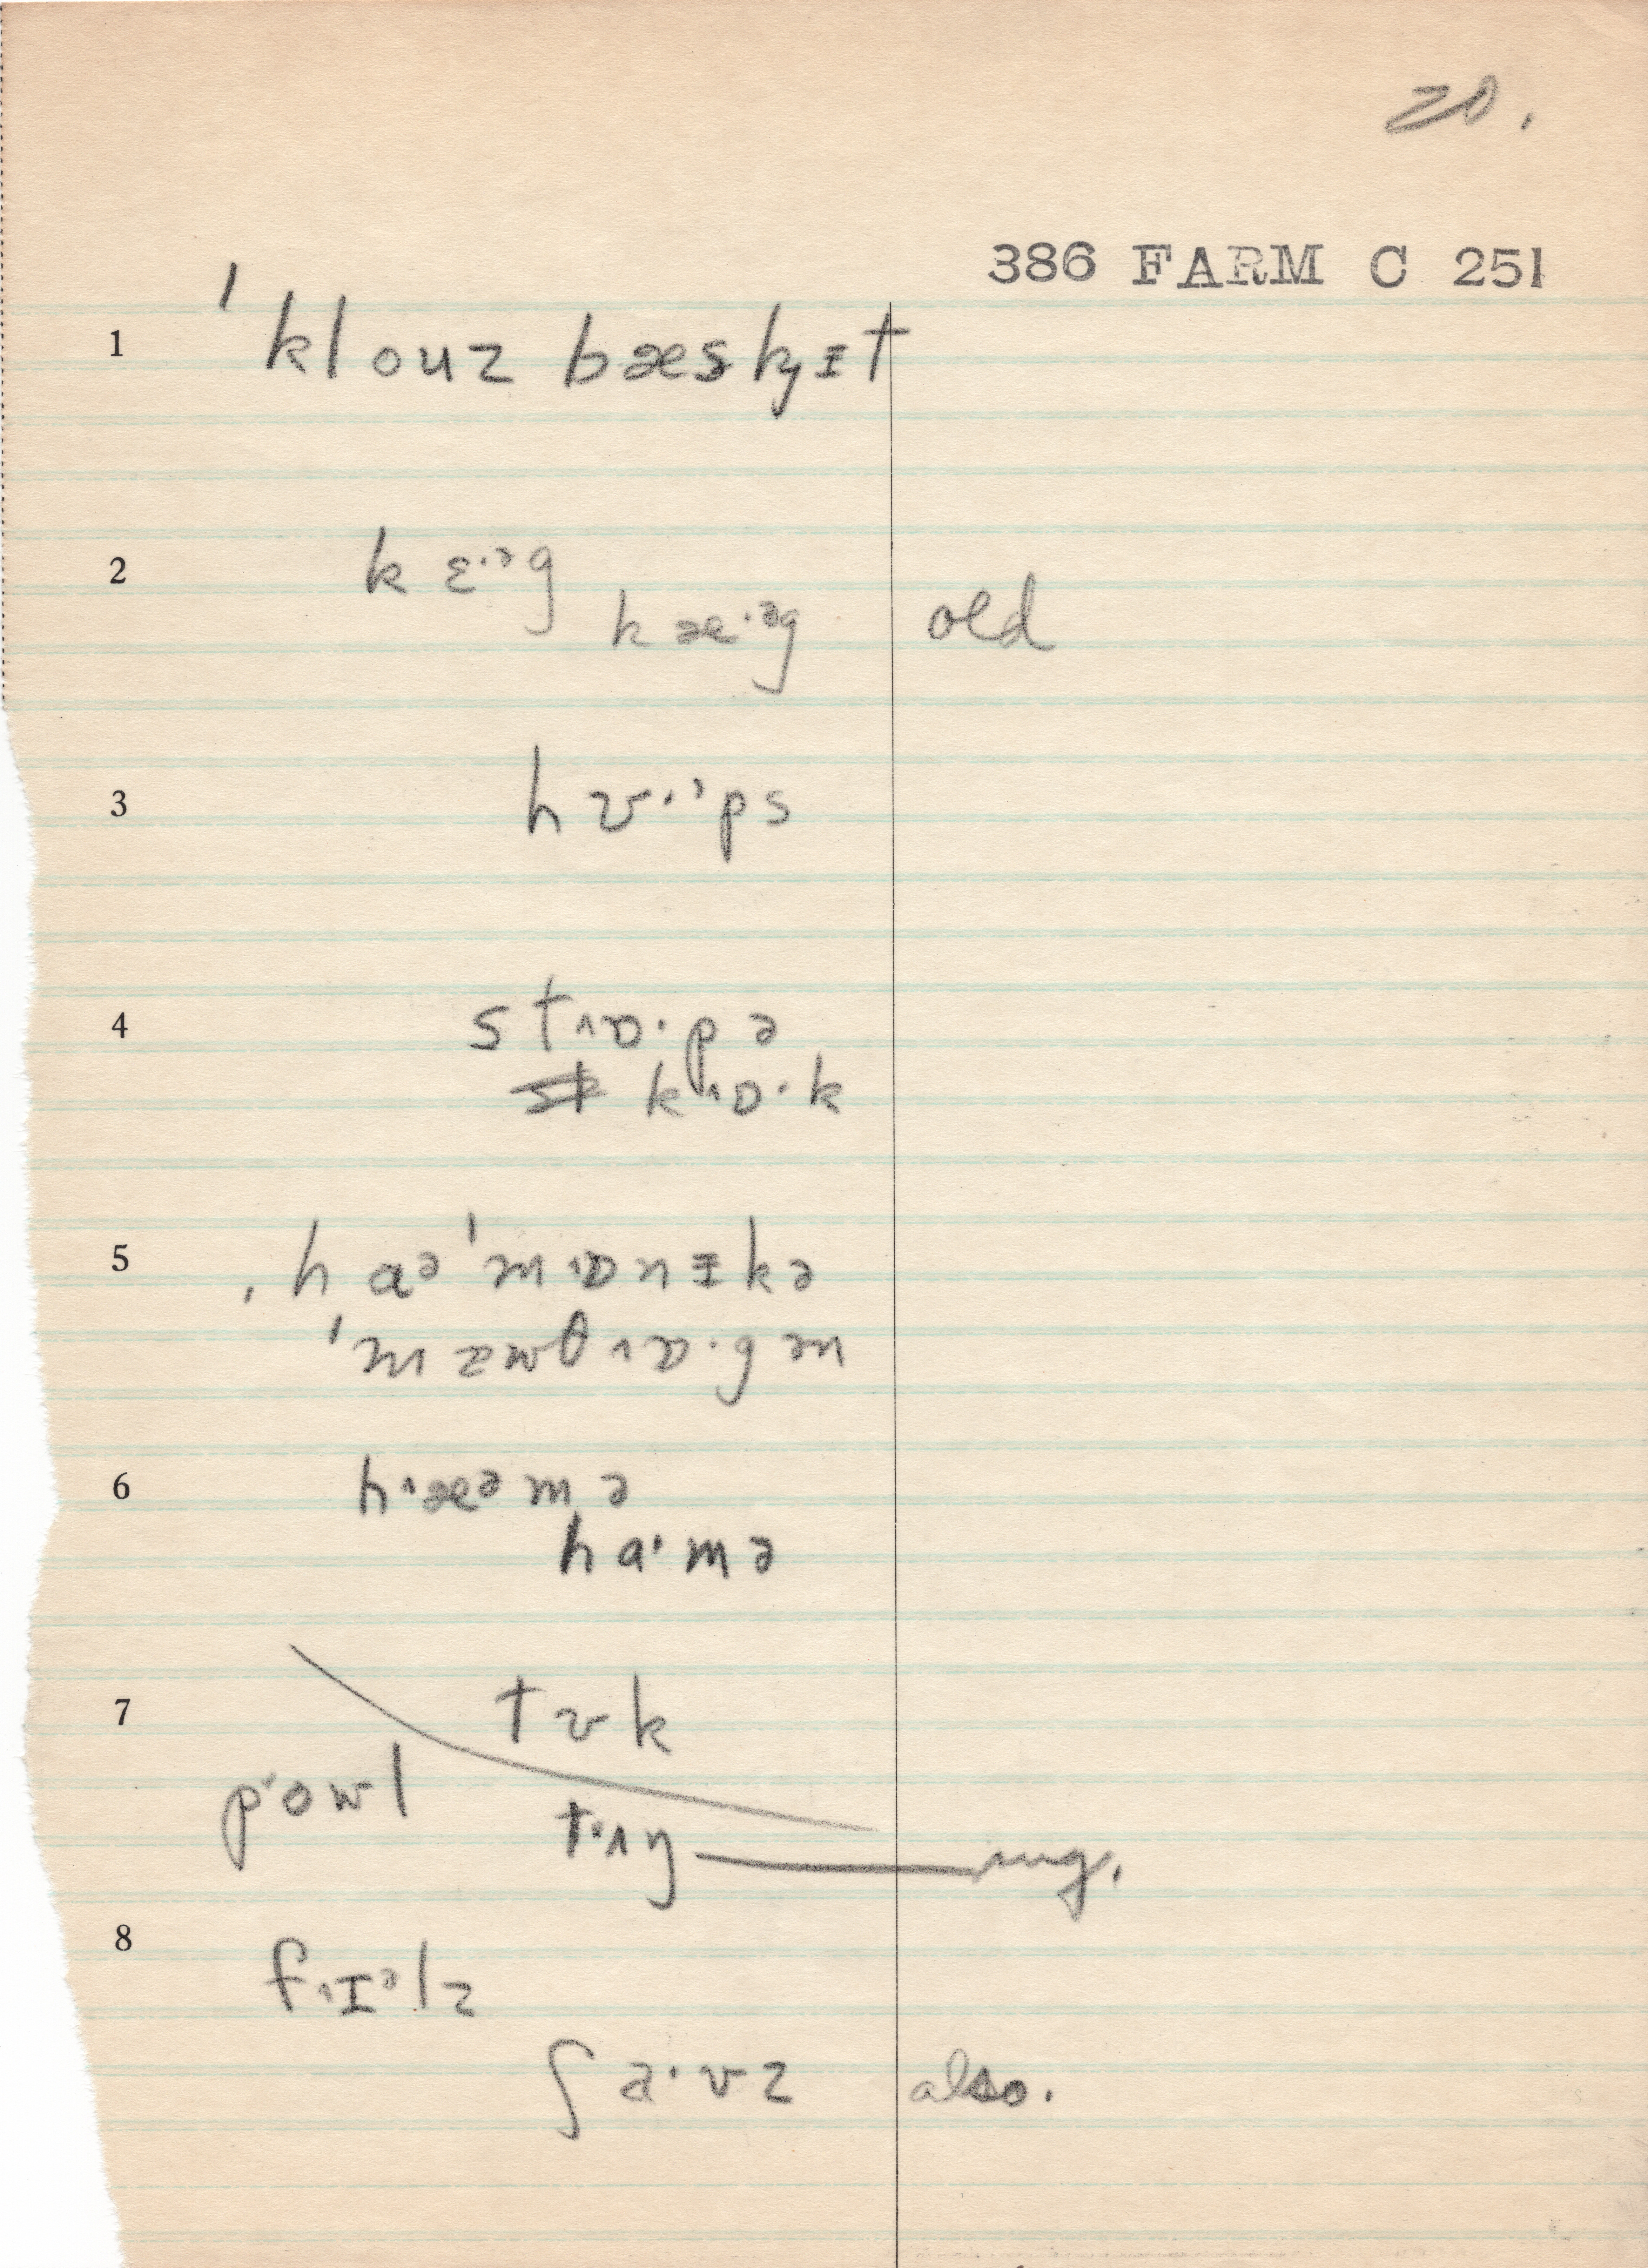 20.
386 FARM C 251
1 ˈklouz bæsk̡ɪt
2 k ɛ·ᵊg
kæ·ᵊg old
3 hʊ·ᵊps
4 stˈɒ·pə
kˈɒ·k
5 ˌhaᵊˈmˈɒnɪkə
ˈmæwθˈɒ·gən
6 hˈæᵊmə
ha·mə
7 tʊk
pˈowl
tˈʌŋ
8 fˈɪᵊlz
ʃa·vz also.